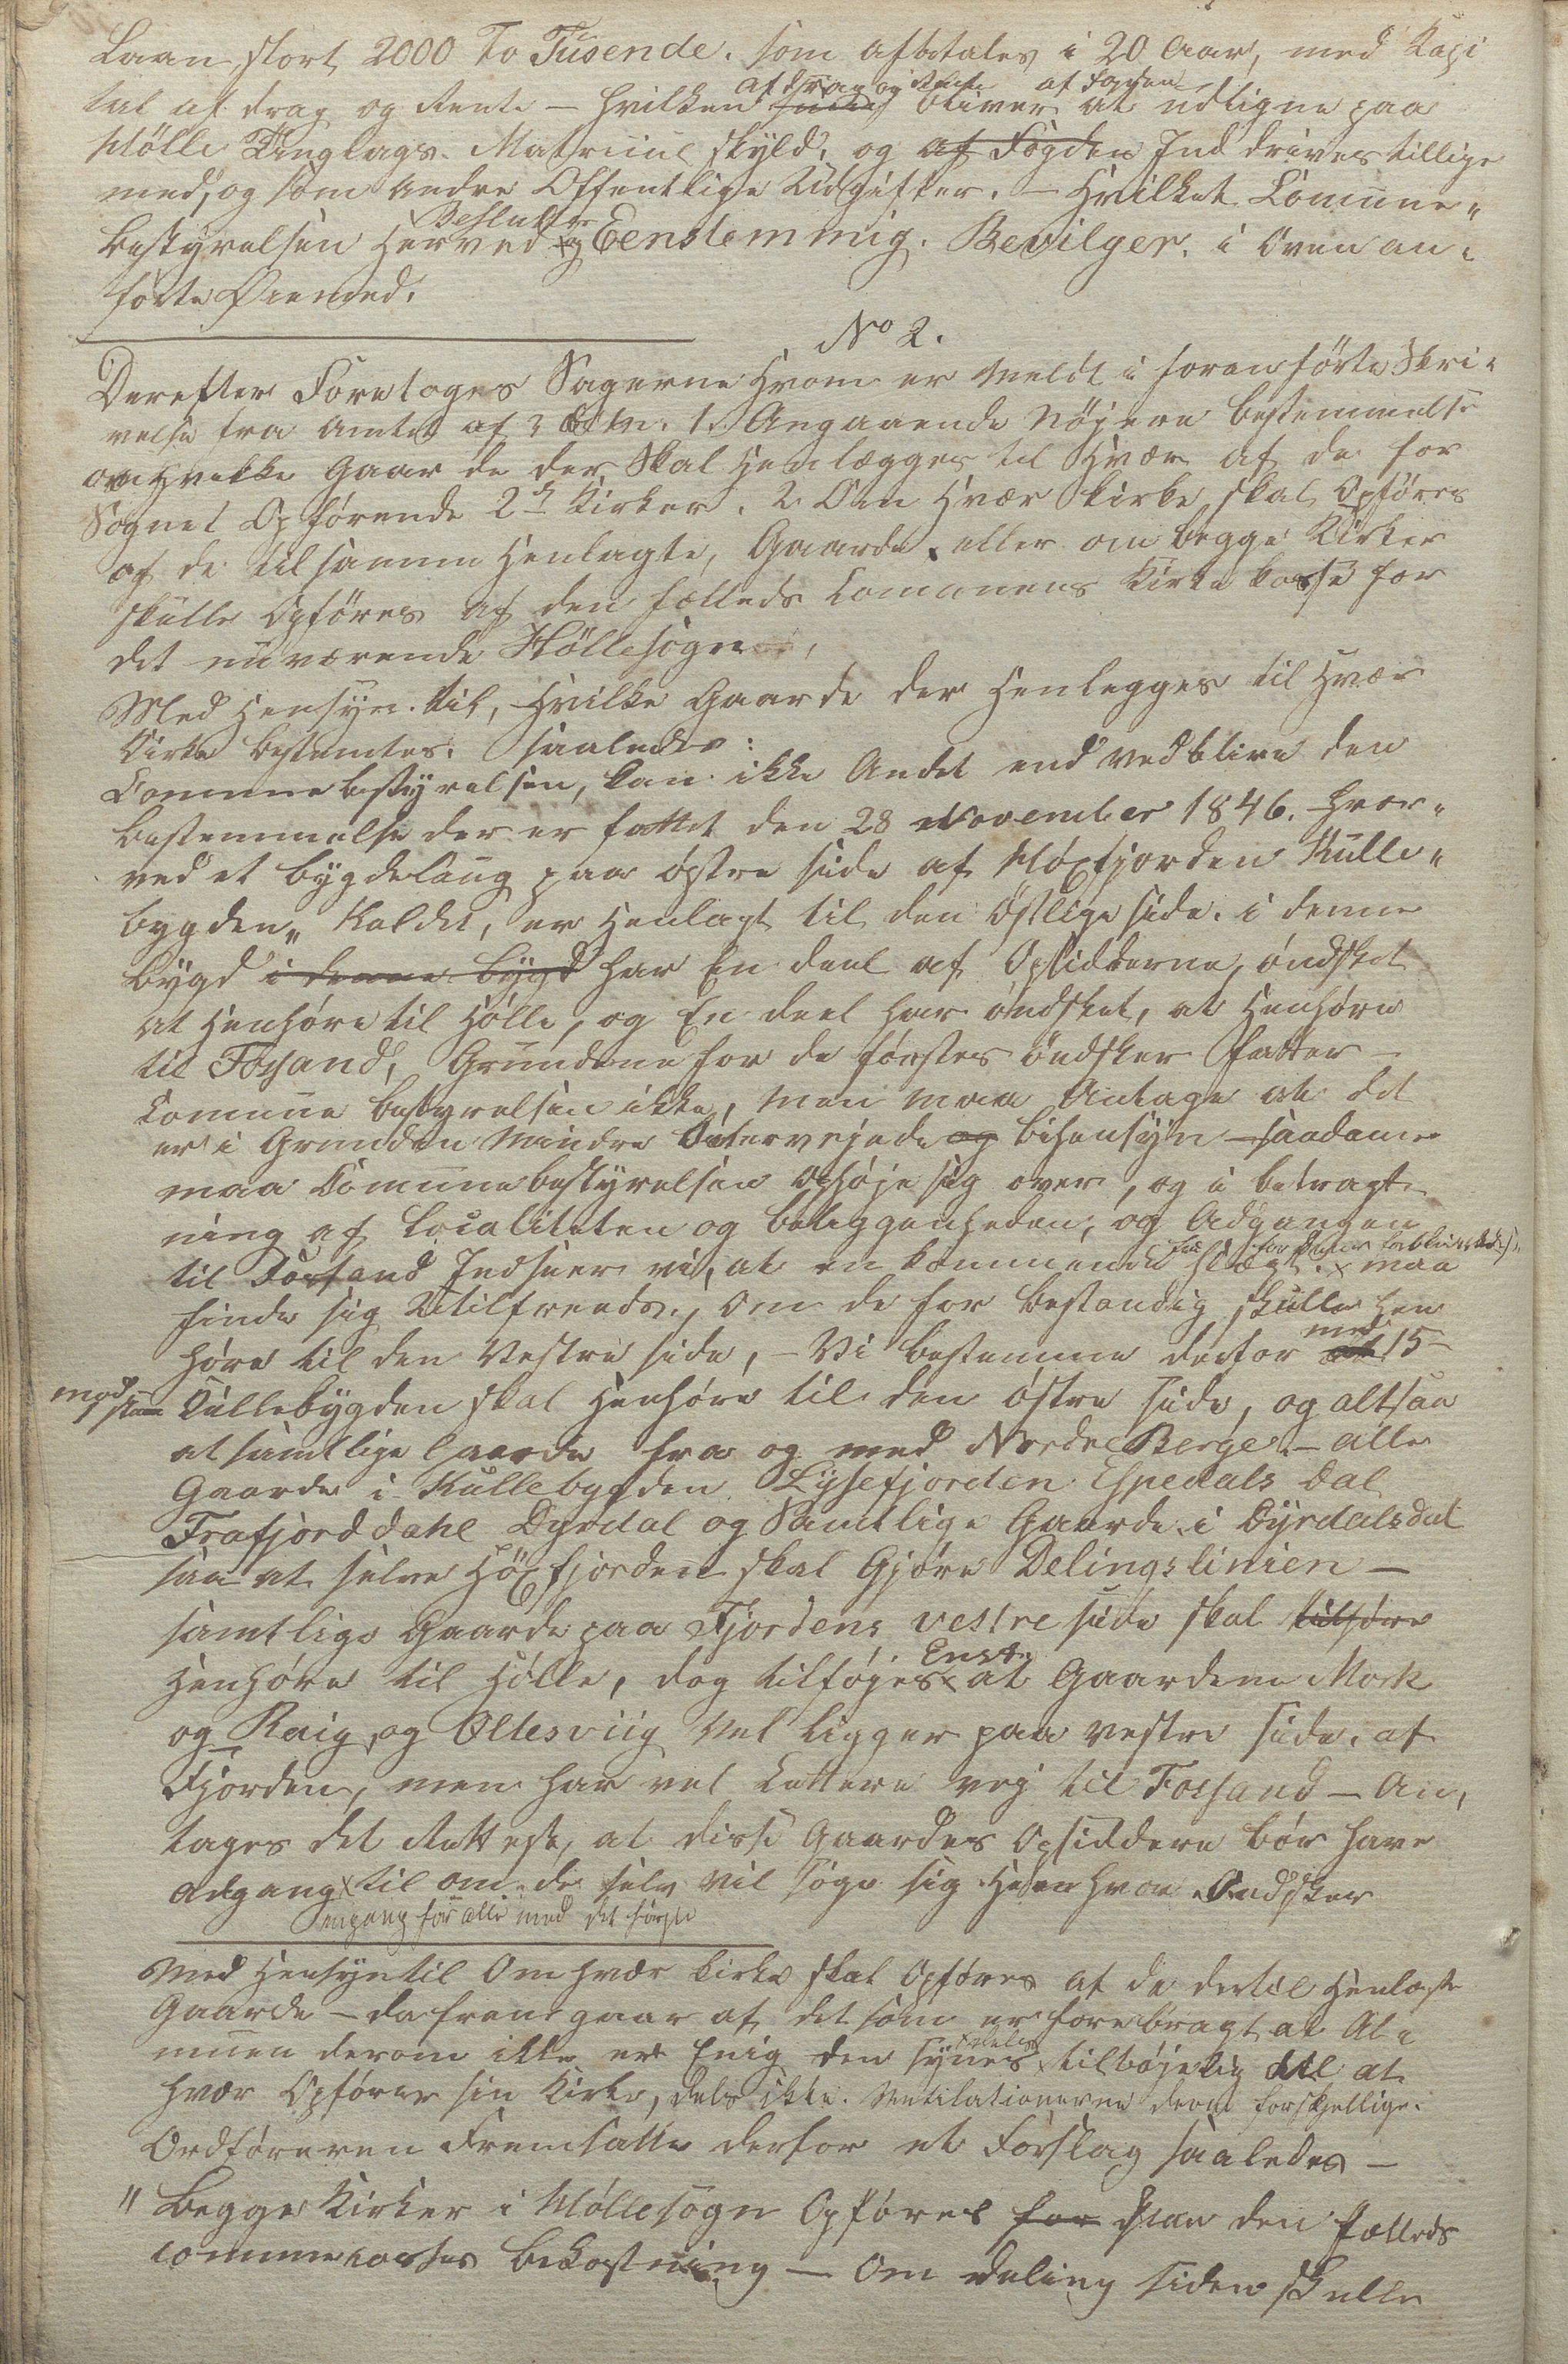 Laan, stort 2000 To Tusende. som afbetales i 20 Aar, med Kapi
tal af drag og Rente – hvilken Afdrag og Rente bliver af Fogden at udligne paa
Hölle Tinglags Matriuul skyld, og af Fogden Ind drives tillige
med, og som andre Offentlige Udgifter. – Hvilket Comune„
bestyrelsen Herved Beslutter og Eenstemmig. Bevilger. i Oven an„
førte Øiemed.
No 2.
Derefter Foretoges Sagerne Hvom er Meldt i foranførte Skri„
velse fra Amtet af 3 dM. 1. Angaaende Nöjere bestemmelse
om Hvilke Gaarde der Skal Henlægges til Hvær af de for
Sognet Opførende 2de Kirker. 2 Om Hvær Kirke skal Opføres
af de til samme Henlagte, Gaarde. eller om begge Kirker
skulle Opföres af den fælleds Comunens Kirke kasse for
det nuværende Höllesogn,
Med Hensyn til, Hvilke Gaarde der Henlegges til Hvær
Kirke bestemtes. saaledes:
Commnebestyrelsen, kan ikke Andet end vedblive den
bestemmelse der er fattet den 28 November 1846. Hvor„
ved et bygdelaug paa østre side af Høgsfjorden Kulle„
bygden„ Kaldet, er Henlagt til den Östlige side. i denne
bygd i denne bygd har En deel af Opsidderne, öndsket
at Henhøre til Hölle, og En deel har öndsket, at Henhøre
til Fossand, Grundene for de førstes öndsker fatter –
Comune bestyrelsen ikke, men maa Antage at det
er i Grunden Mindre Overvejede og bihensyn – saadanne
maa Comunebestyrelsen ophøje sig over, og i betragt
ning af Localiteten og beliggenheden, og Adgangen
til Forsand Indseer vi, at en kommende slægt. maa
finde sig Utilfreds., Om de for bestandig skulle Hen
høre til den Vestre side, – Vi bestemme derfor med at 15
mod stem Kullebygden skal Henhøre til den östre side, og altsaa
at samtlige Gaarde fra og med Nordre Berge – alle
Gaarde i Kullebygden Lysefjorden Espedals Dal
Frafjorddahl Dyrdal og Samtlige Gaarde i Dyrdalsdal
saa at selve Högsfjorden skal Gjøre Delingslinien –
samtlige Gaarde paa Fjordens vestre side skal tilhøre
Henhøre til Hölle, dog tilföjes Enst. at Gaardene Mork
og Raig, og Oltesviig Vel ligger paa vestre side. af
Fjorden, men har vel Lettere vej til Fossand – An„
tages det Retteste, at disse Gaardes Opsiddere bör have
Adgang til om de selv vil söge sig Heen hvor Öndsker
engang for alle med det første
Med Hensyn til Om hvær Kirke skal Opføres af de dertil Henlagte
Gaarde – da fremgaar af det som er forebragt at Al„
muen derom ikke er Enig den synes deels tilböjelig til at
hvær Opfører sin Kirke, dels ikke. Ventilationerne derom forskjellige.
Ordføreren Fremsatte derfor et Forslag saaledes –
" Begge Kirker i Höllesogn Opføres for paa den Fælleds
commnecasses bekostning – Om deling siden skulle